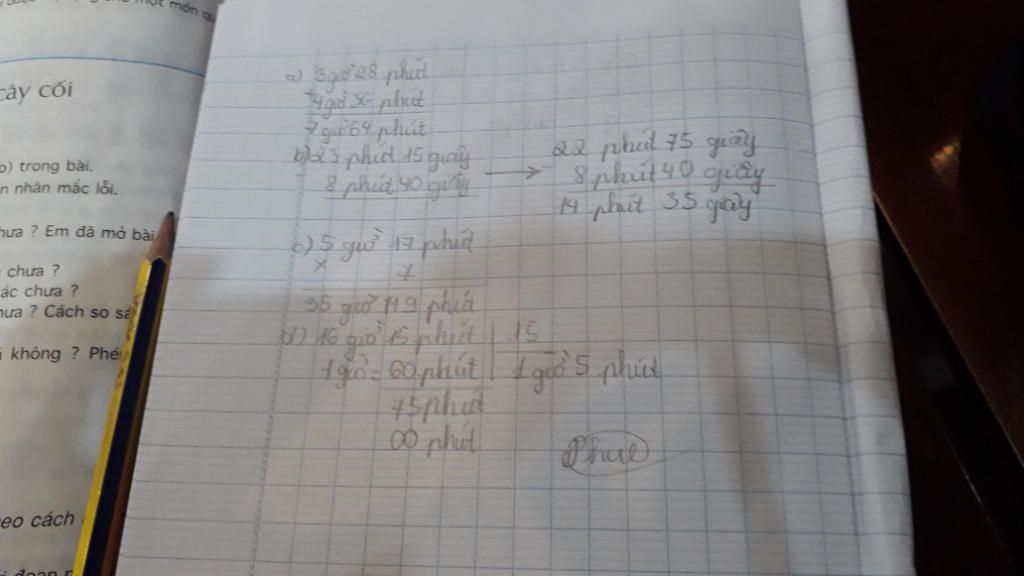 một món qu
cây cối
o) trong bài.
n nhân mắc lỗi.
hưa ? Em đã mở bài
chưa ?
ác chưa ?
hưa ? Cách so sá
i không ? Phé
eo cách
i đoạn
a) 3 giờ 28 phút
+ 4 giờ 36 phút
7 giờ 64 phút
b) 23 phút 15 giây → 22 phút 75 giây
- 8 phút 40 giây - 8 phút 40 giây
14 phút 35 giây
c) 5 giờ 17 phút
x 7
35 giờ 119 phút
d) 16 giờ 15 phút 15
1 giờ = 60 phút 1 giờ 5 phút
75 phút
00 phút